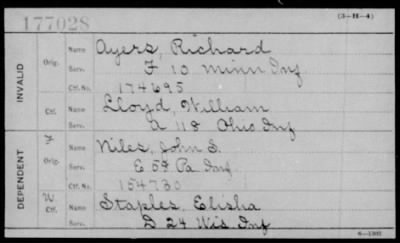 177028
(3-II-4)
INVALID
Orig. Name Ayers, Richard
Serv. F 10 Minn Inf
Ctf. No. 174695
Ctf. Name Lloyd, William
Serv. A 118 Ohio Inf
DEPENDENT
F Orig. Name Niles, John S.
Serv. E 58 Pa Inf
Ctf. No. 154730
W Ctf. Name Staples, Elisha
Serv. D 24 Wis Inf